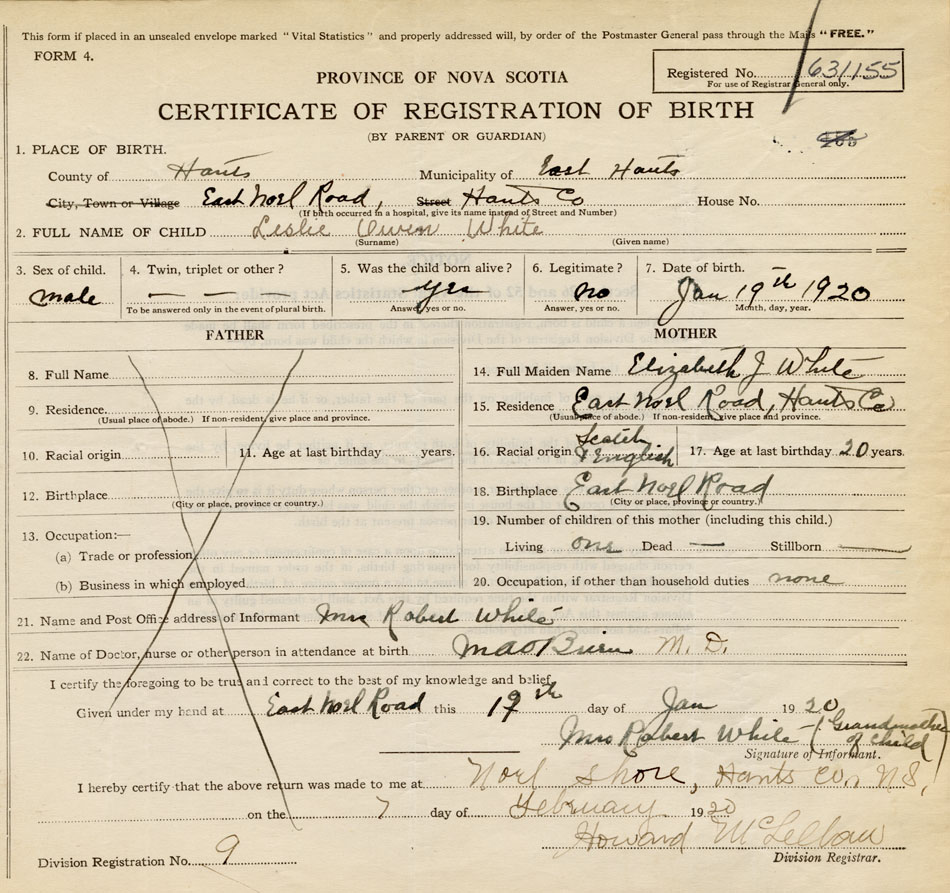 This form if placed in an unsealed envelope marked "Vital Statistics" and properly addressed will, by order of the Postmaster General pass through the Mails "FREE."
FORM 4.
PROVINCE OF NOVA SCOTIA
Registered No. 631155
For use of Registrar General only.
CERTIFICATE OF REGISTRATION OF BIRTH
(BY PARENT OR GUARDIAN)
1. PLACE OF BIRTH.
County of Hants Municipality of East Hants
City, Town or Village East Noel Road, Street Hants Co House No.
(If birth occurred in a hospital, give its name instead of Street and Number)
2. FULL NAME OF CHILD Leslie Owen White
(Surname) (Given name)
3. Sex of child. 4. Twin, triplet or other? 5. Was the child born alive? 6. Legitimate? 7. Date of birth.
male — — yes no Jan 19th 1920
To be answered only in the event of plural birth. Answer, yes or no. Answer, yes or no. Month, day, year.
FATHER MOTHER
8. Full Name 14. Full Maiden Name Elizabeth J White
9. Residence. 15. Residence East Noel Road, Hants Co
(Usual place of abode.) If non-resident, give place and province. (Usual place of abode.) If non-resident, give place and province.
10. Racial origin 11. Age at last birthday years. 16. Racial origin Scotch & English 17. Age at last birthday 20 years.
12. Birthplace 18. Birthplace East Noel Road
(City or place, province or country.) (City or place, province or country.)
13. Occupation:— 19. Number of children of this mother (including this child.)
(a) Trade or profession Living one Dead — Stillborn —
(b) Business in which employed 20. Occupation, if other than household duties none
21. Name and Post Office address of Informant Mrs Robert White
22. Name of Doctor, nurse or other person in attendance at birth O'Brien M. D.
I certify the foregoing to be true and correct to the best of my knowledge and belief.
Given under my hand at East Noel Road this 19th day of Jan 1920
Mrs Robert White - (Grandmother of child)
Signature of Informant.
I hereby certify that the above return was made to me at Noel Shore, Hants Co., N.S,
on the 7 day of February 1920
Howard McLellan
Division Registrar.
Division Registration No. 9